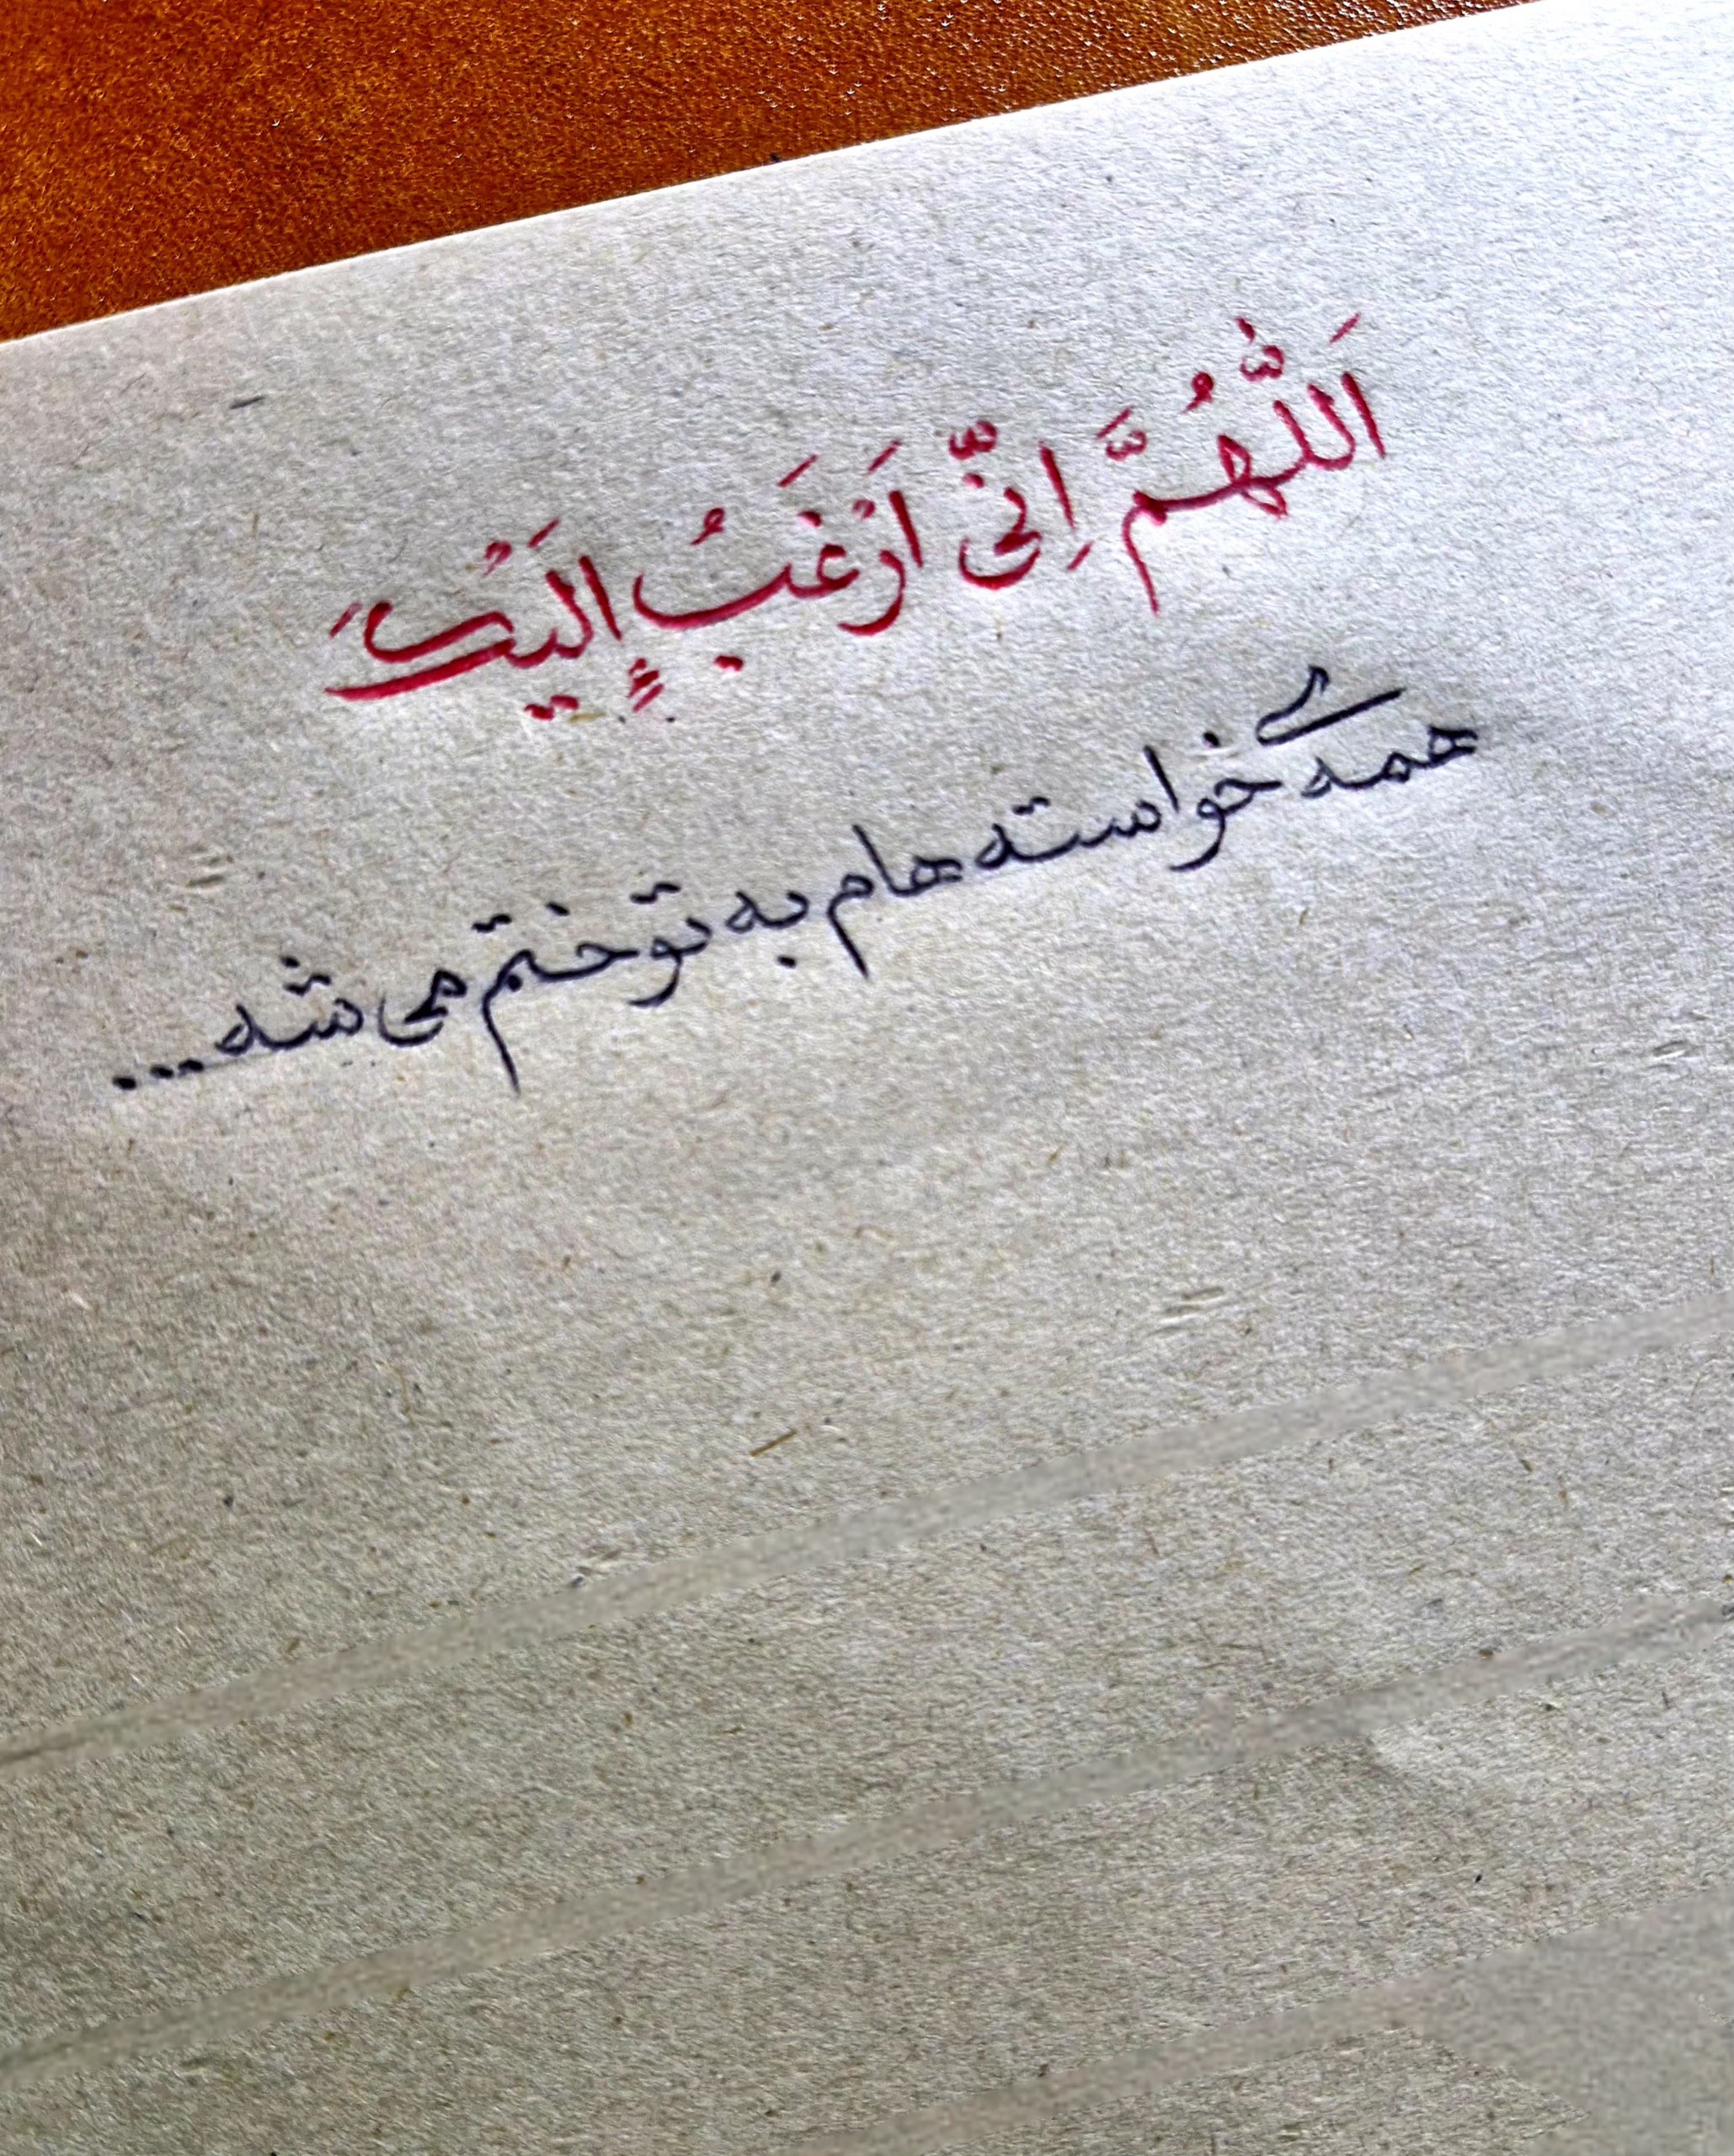 اَللّٰهُمَّ اِنّی اَرْغَبُ إِلَیْکَ
همه‌ی خواسته هام به تو ختم می شه...